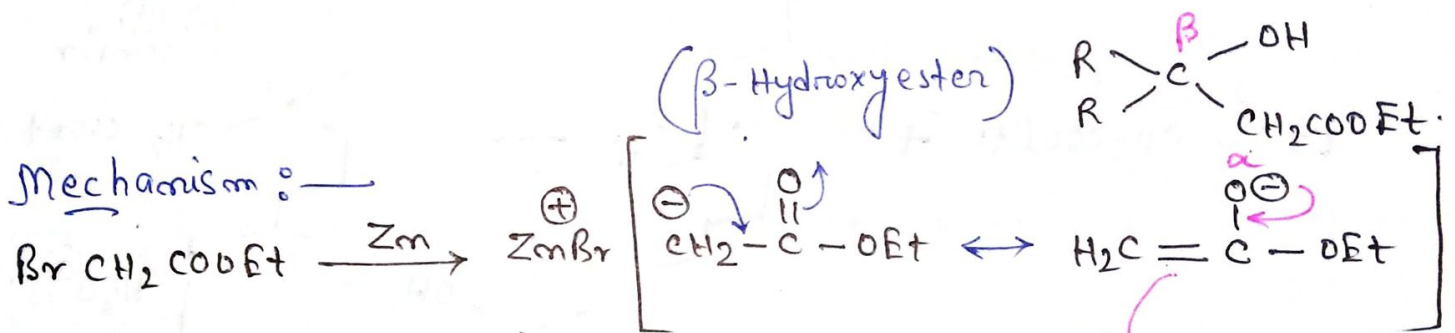 β OH
(β-Hydroxyester) R C
R CH₂COOEt.
Mechanism :— α
⊕ ⊖ O O⊖
Br CH₂ COOEt Zn → ZnBr [ CH₂ – C – OEt ↔ H₂C = C – OEt ]